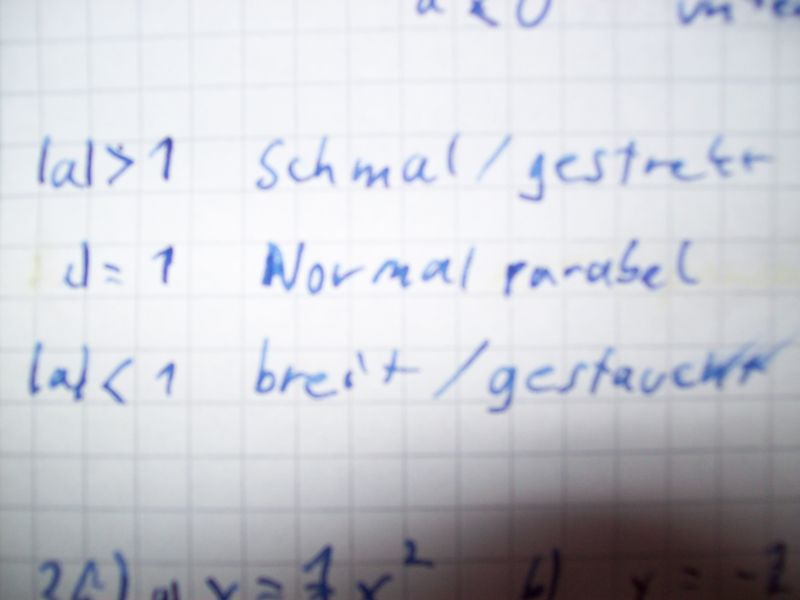 a < 0
|a| > 1 Schmal / gestrekt
a = 1 Normal parabel
|a| < 1 breit / gestaucht
a) y = x² b) y = -